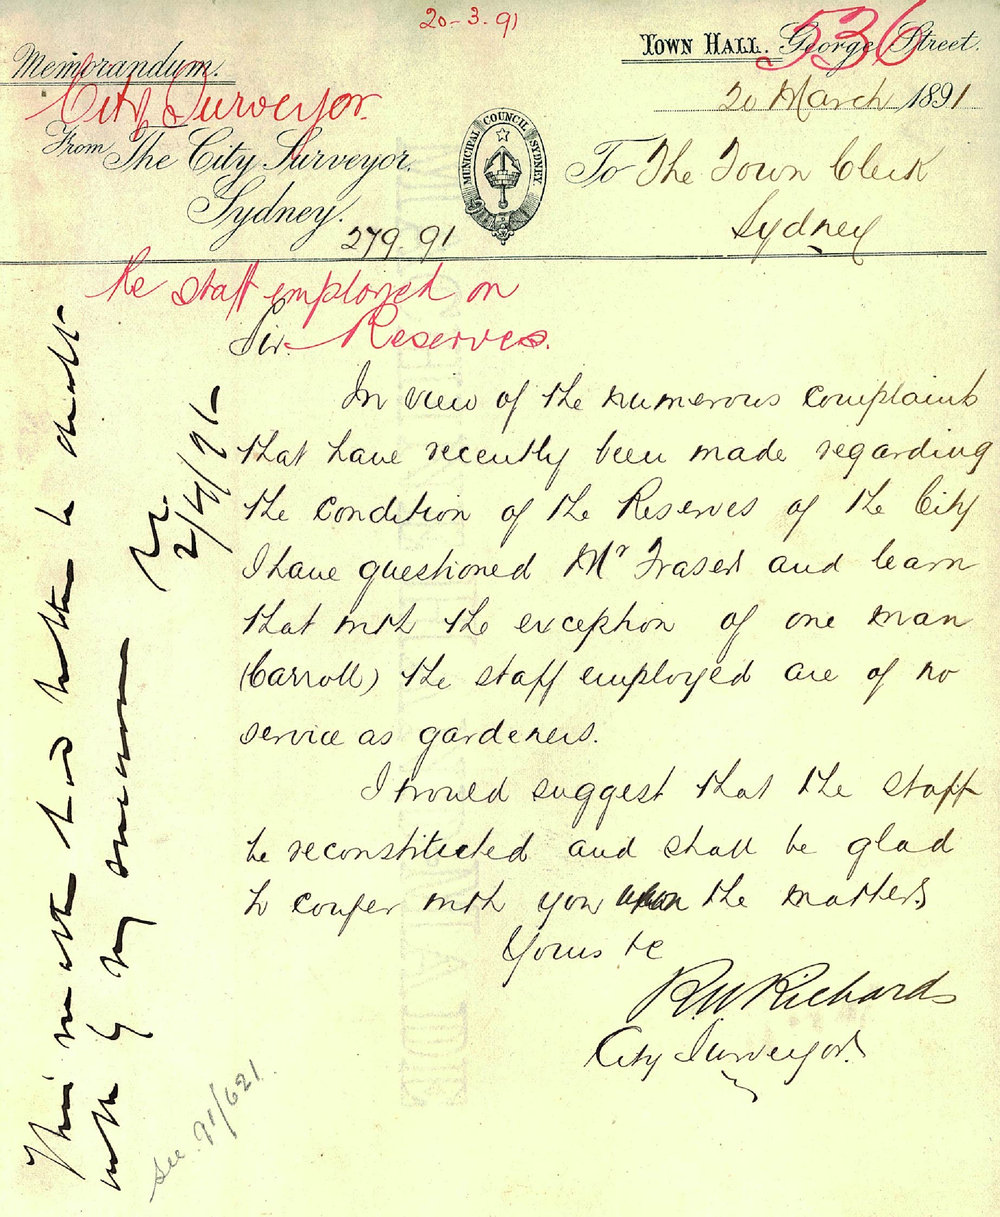 20-3.91
536
TOWN HALL. George Street.
Memorandum.
City Surveyor.
20 March 1891
From The City Surveyor.
Sydney.
279.91
MUNICIPAL COUNCIL SYDNEY.
To The Town Clerk
Sydney
Re staff employed on
Reserves.
Sir.
In view of the numerous complaints
that have recently been made regarding
the condition of the Reserves of the City
I have questioned Mr Fraser and learn
that with the exception of one man
(Carroll) the staff employed are of no
service as gardeners.
I would suggest that the staff
be reconstituted and shall be glad
to confer with you upon the matter.
Yours &c
R W Richards
City Surveyor.
This matter had better be dealt
with by my successor
2/4/91
See. 91/621.